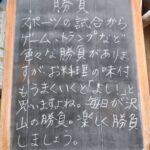 勝負
スポーツの試合から
ゲーム、トランプなど
色々な勝負がありま
すが、お料理の味付
もうまくいくと「よし!」と
思いますよね。毎日が沢
山の勝負。楽しく勝負
しましょう。